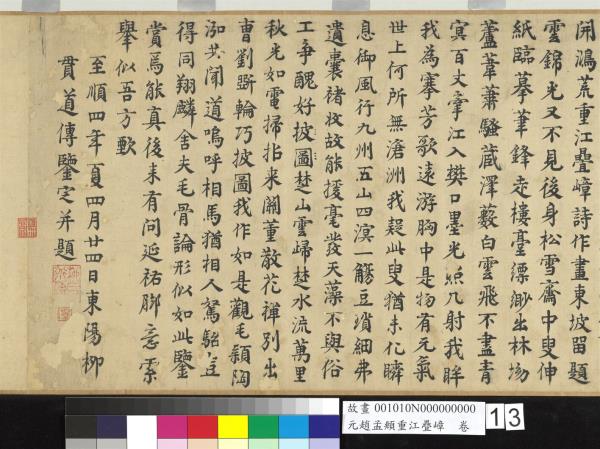 開鴻荒重江疊嶂詩作畫東坡留題
雲錦光又不見後身松雪齋中叟伸
紙臨摹筆鋒走樓臺縹緲出林坳
蘆葦蕭騷藏澤藪白雲飛不盡青
冥百丈牽江入樊口墨光照几射我眸
我為搴芳歌遠游胸中是物有元氣
世上何所無滄洲我疑此叟猶未化瞬
息御風行九州五山四溟一觴豆瑣細弗
遺囊褚收故能援毫發天藻不與俗
工爭醜好披圖楚山雲歸楚水流萬里
秋光如電掃指来關董散花禪別出
曹劉斲輪巧披圖我作如是觀毛穎陶
泓共聞道嗚呼相馬猶相人駑駘豈
得同翔麟舍夫毛骨論形似如此鑒
賞焉能真後来有問延祐腳意索
舉似吾方歅
至順四年夏四月廿四日東陽柳
貫道傳鑒定并題
故畫 001010N000000000
元趙孟頫重江疊嶂 卷
13